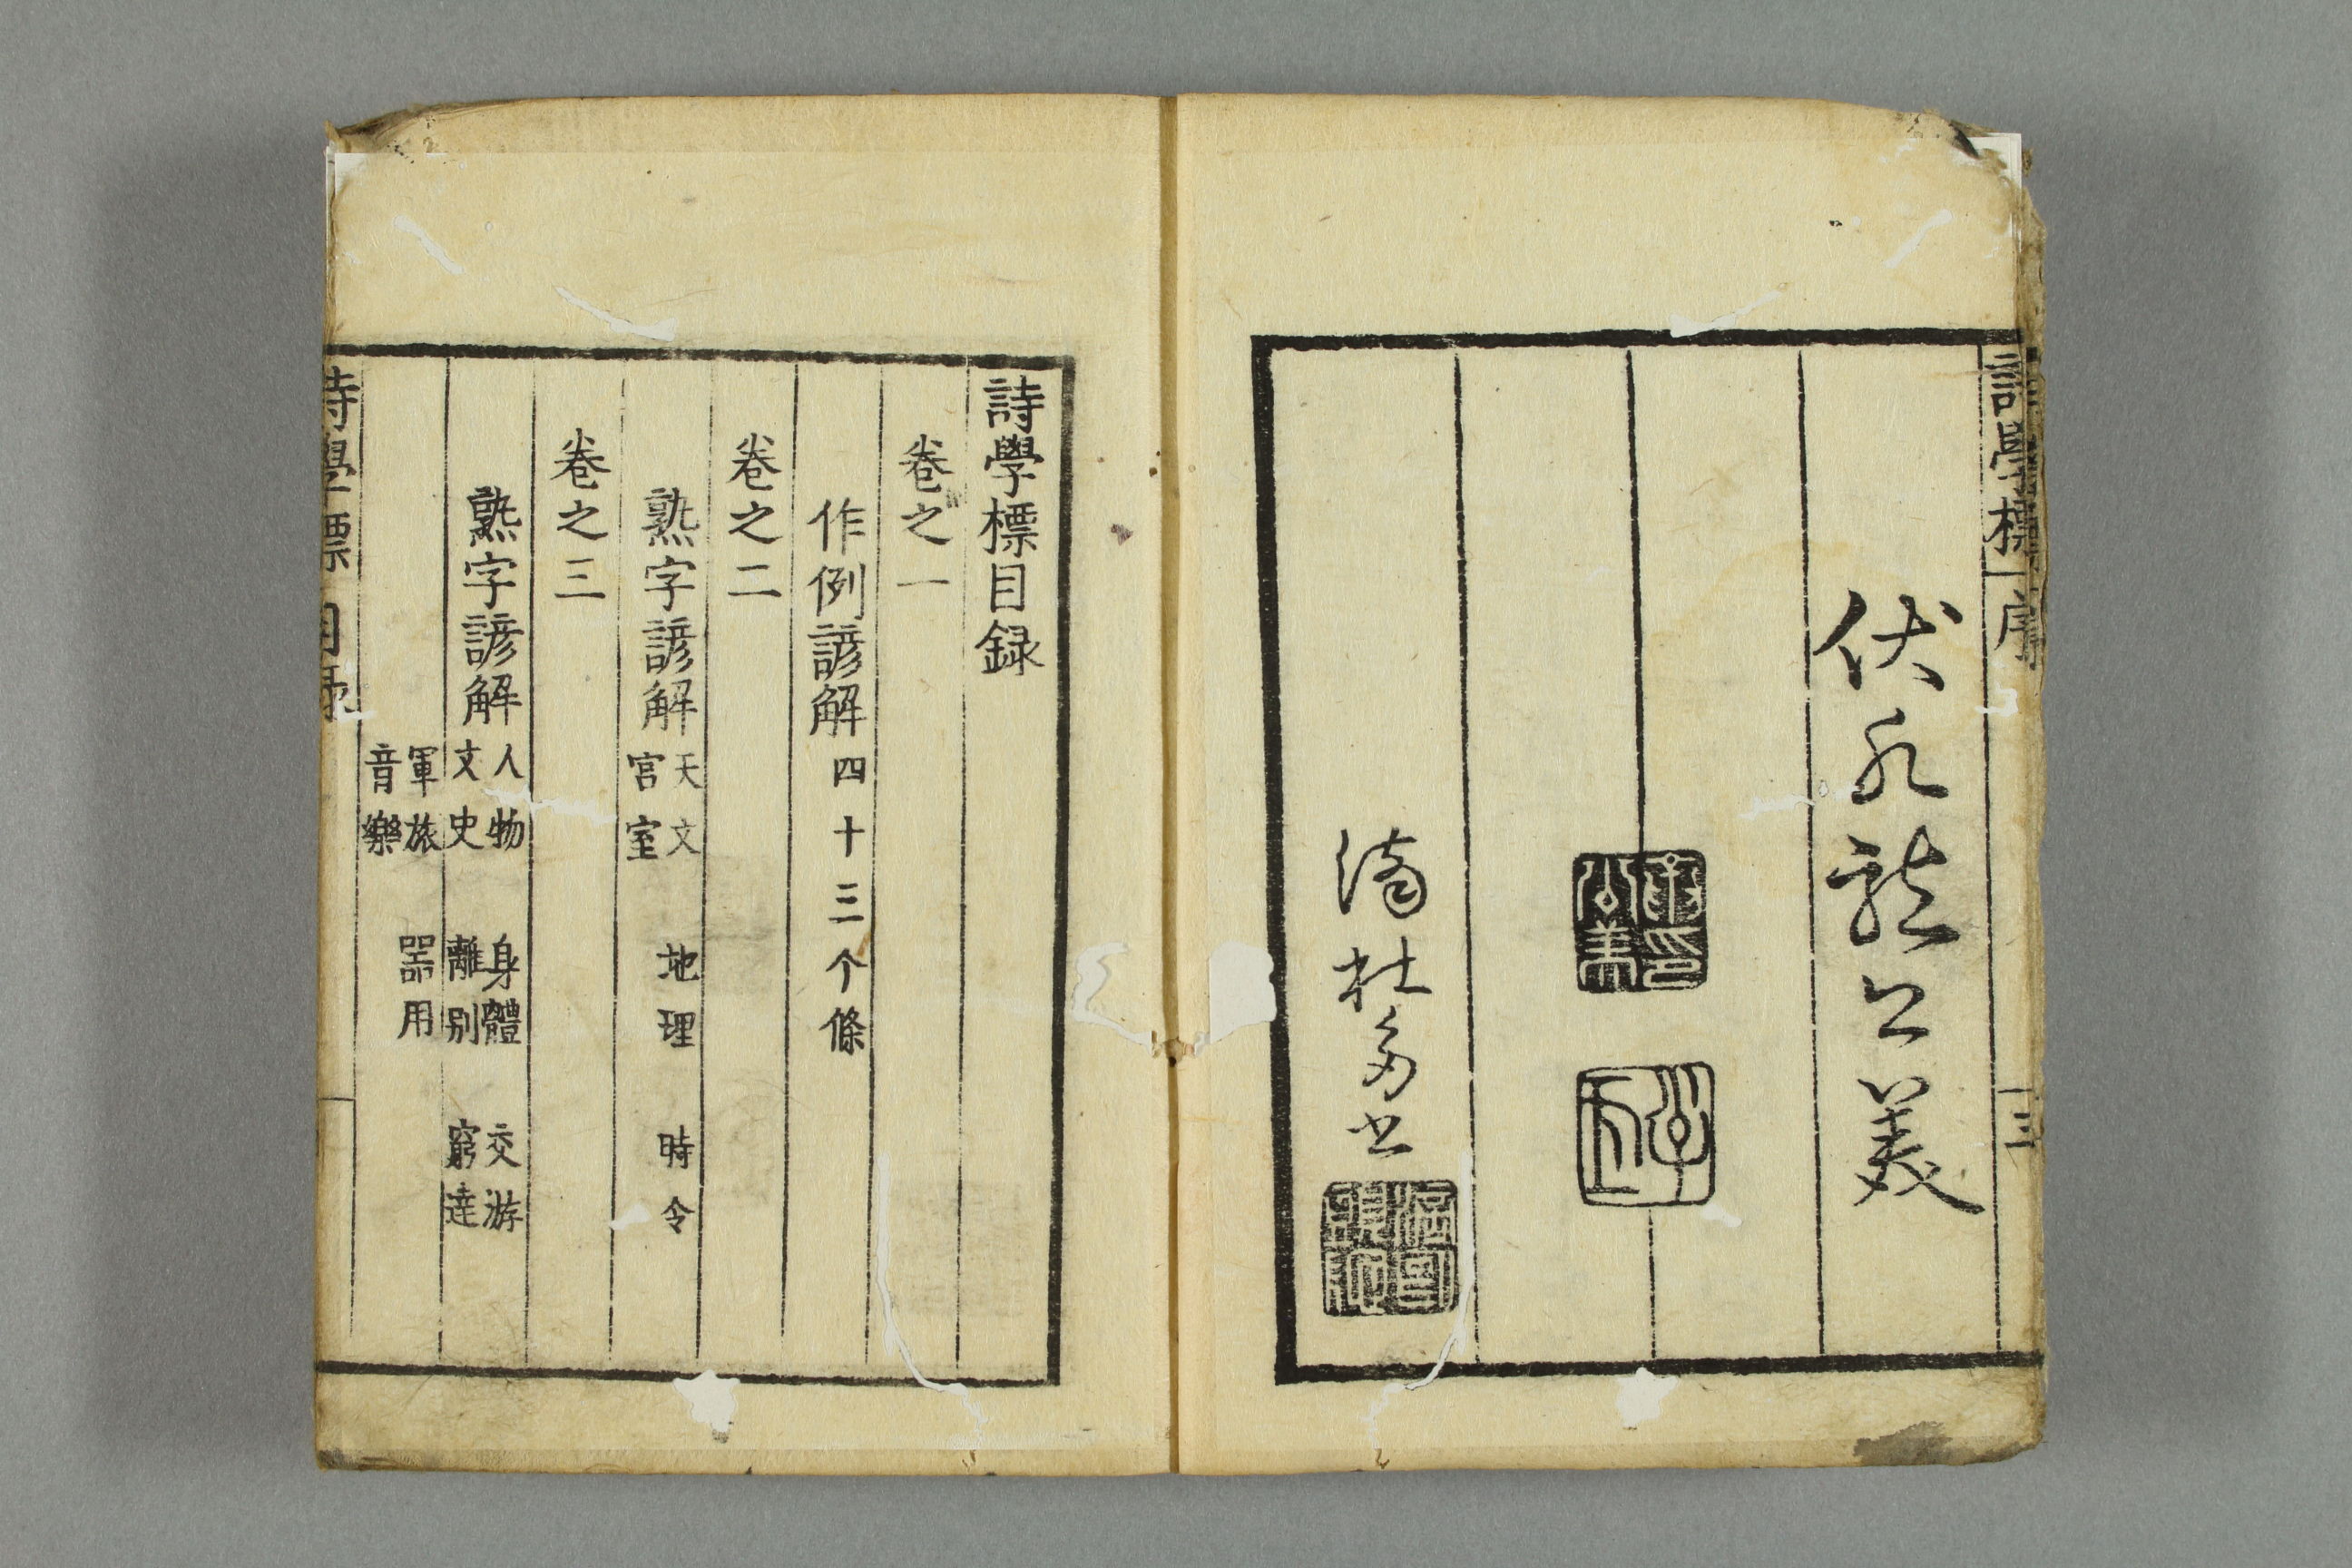 詩學標 序
三
伏永龍公美
詩學標目録
卷之一
作例諺解 四十三个條
卷之二
熟字諺解 天文 地理 時令
宮室
卷之三
熟字諺解 人物 身體 交游
文史 離別 窮達
軍旅 器用
音樂
詩學標 目録